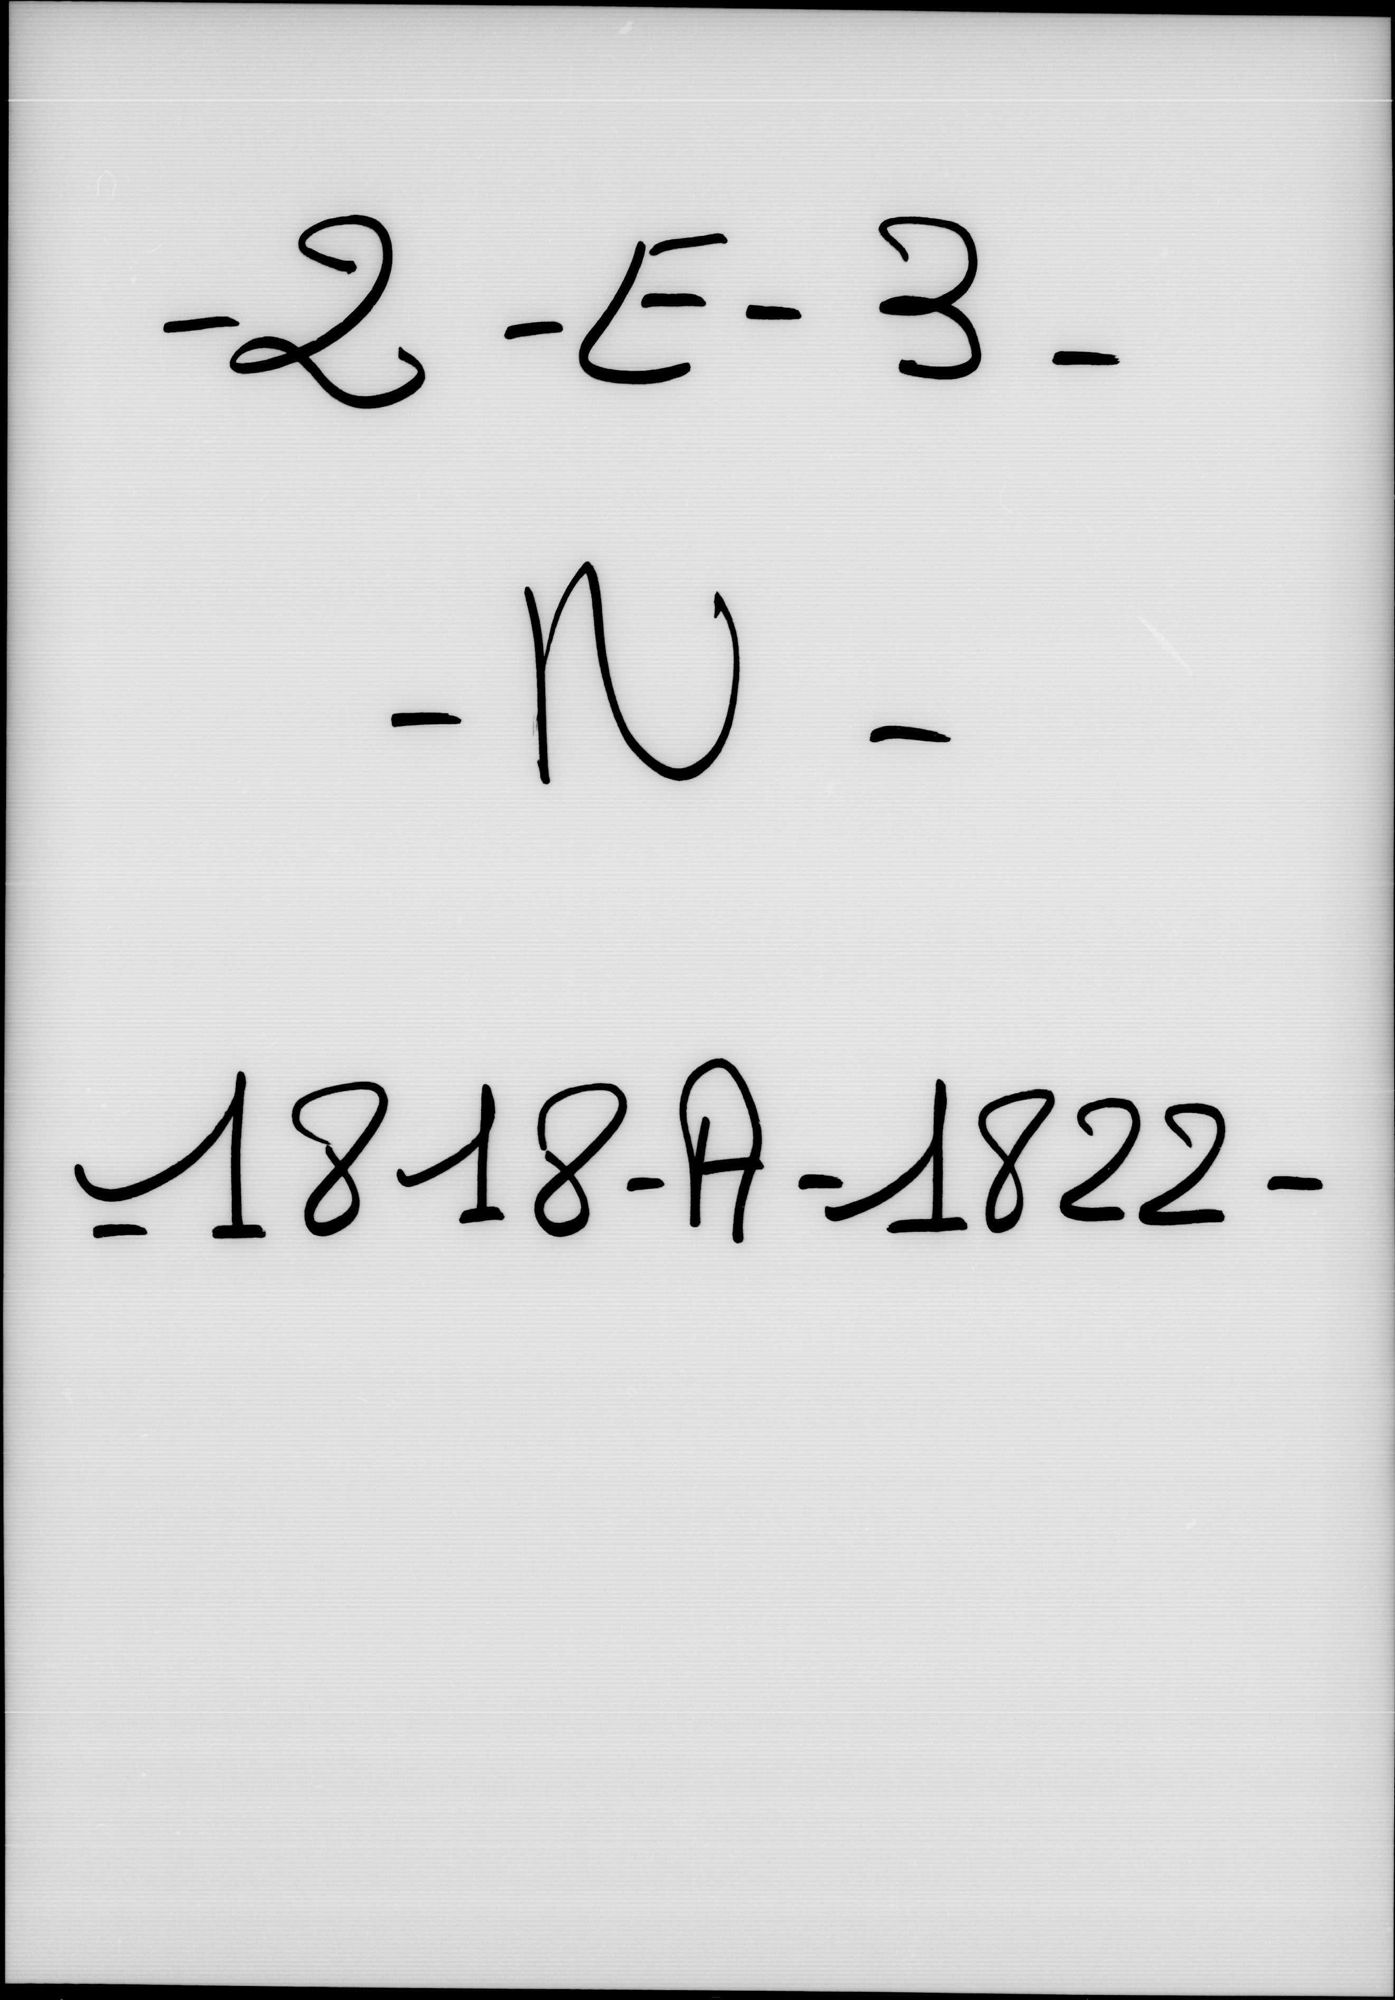 -2-E-3-
-N-
-1818-A-1822-